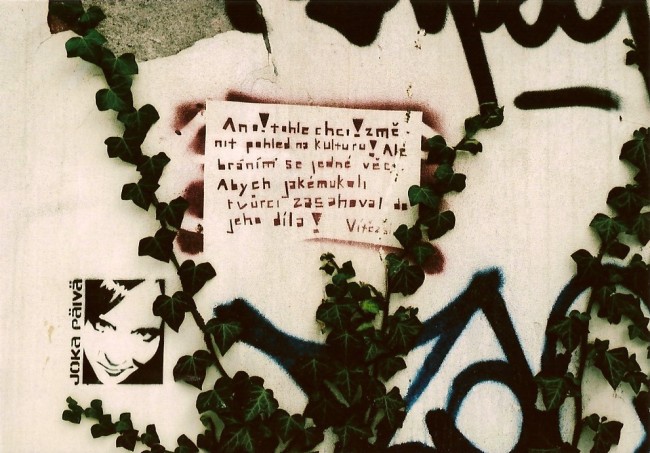 Ano! tohle chci! změ-
nit pohled na kulturu! Ale
bráním se jedné věci
Abych jakémukoli
tvůrci zasahoval do
jeho díla!
JOKA PÄIVÄ